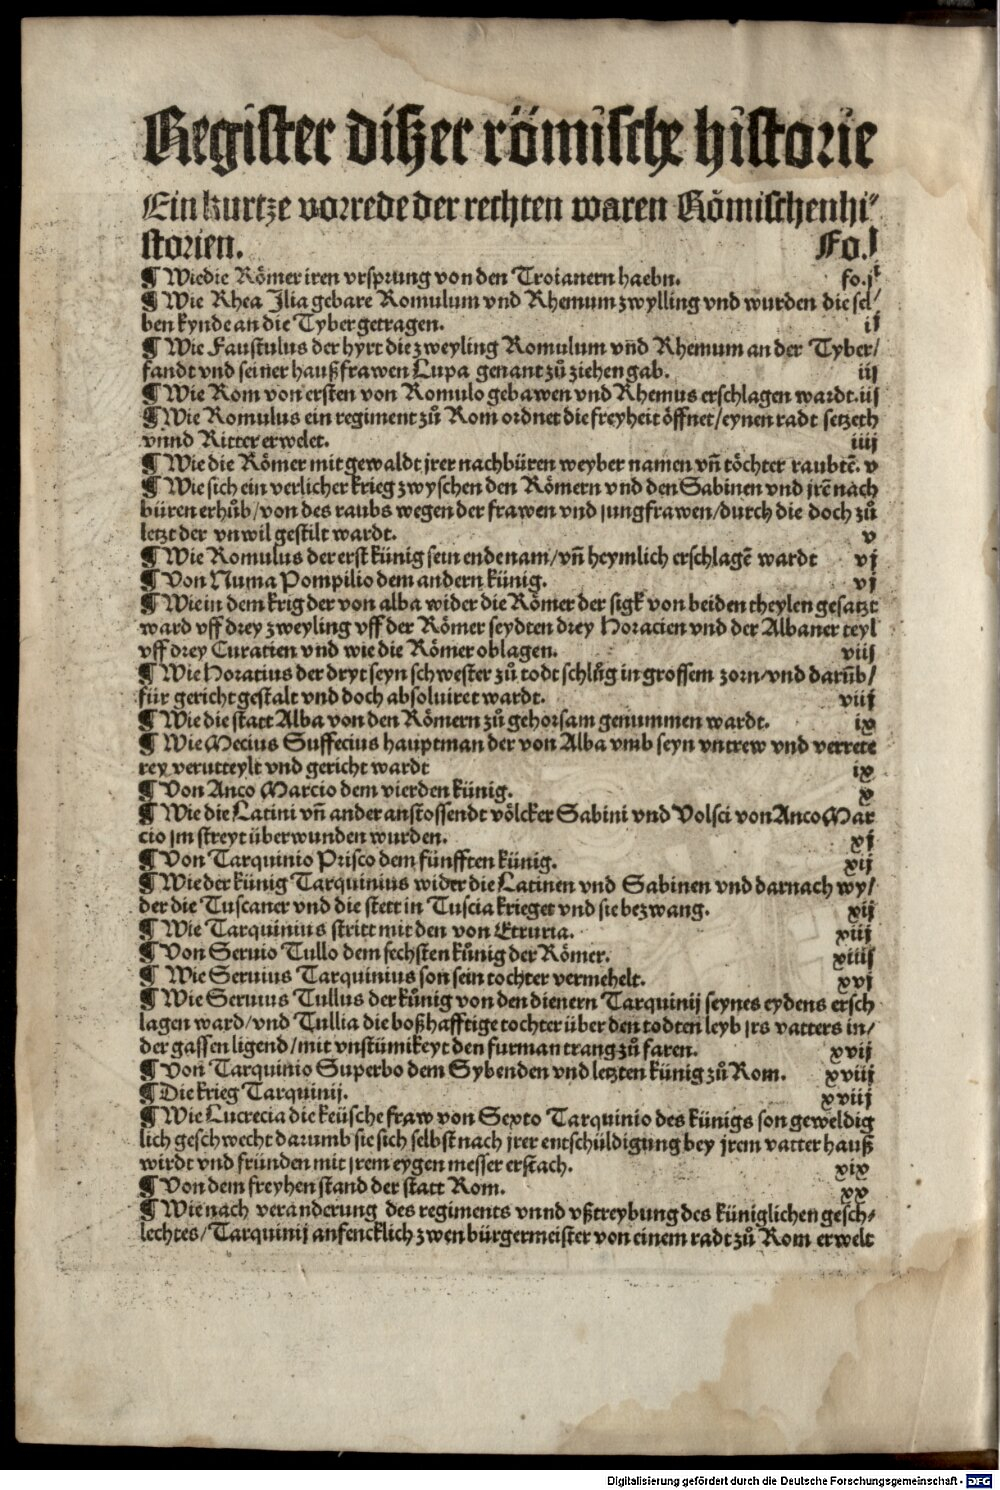 Register diszer römische historie
Ein kurtze vorrede der rechten waren Römischen hi⸗
storien. Fo.j
¶ Wie die Römer iren vrsprung von den Troianern haebn. fo.j
¶ Wie Rhea Jlia gebare Romulum vnd Rhemum zwylling vnd wurden die sel/
ben kynde an die Tyber getragen. ij
¶ Wie Faustulus der hyrt die zweyling Romulum vnd Rhemum an der Tyber/
fandt vnd seiner haußfrawen Lupa genant zů ziehen gab. iij
¶ Wie Rom von ersten von Romulo gebawen vnd Rhemus erschlagen wardt. iij
¶ Wie Romulus ein regiment zů Rom ordnet die freyheit öffnet/eynen radt setzeth
vnnd Ritter erwelet. iiij
¶ Wie die Römer mit gewaldt jrer nachbüren weyber namen vñ töchter raubtẽ. v
¶ Wie sich ein verlicher krieg zwyschen den Römern vnd den Sabinen vnd jrẽ nach
büren erhůb/von des raubs wegen der frawen vnd jungfrawen/durch die doch zů
letzt der vnwil gestilt wardt. v
¶ Wie Romulus der erst künig sein ende nam/vñ heymlich erschlagẽ wardt vj
¶ Von Numa Pompilio dem andern künig. vj
¶ Wie in dem krig der von alba wider die Römer der sigk von beiden theylen gesatzt
ward vff drey zweyling vff der Römer seydten drey Horacien vnd der Albaner teyl
vff drey Curatien vnd wie die Römer oblagen. viij
¶ Wie Horatius der dryt seyn schwester zů todt schlůg in grossem zorn/vnd darũb/
für gericht gestalt vnd doch absoluiret wardt. viij
¶ Wie die statt Alba von den Römern zů gehorsam genummen wardt. ix
¶ Wie Mecius Suffecius hauptman der von Alba vmb seyn vntrew vnd verrete
rey verutteylt vnd gericht wardt ix
¶ Von Anco Marcio dem vierden künig. x
¶ Wie die Latini vñ ander anstossendt völcker Sabini vnd Volsci von Anco Mar
cio jm streyt überwunden wurden. xj
¶ Von Tarquinio Prisco dem fünfften künig. xij
¶ Wie der künig Tarquinius wider die Latinen vnd Sabinen vnd darnach wy/
der die Tuscaner vnd die stett in Tuscia krieget vnd sie bezwang. xij
¶ Wie Tarquinius stritt mit den von Etruria. xiij
¶ Von Seruio Tullo dem sechsten künig der Römer. xiiij
¶ Wie Seruius Tarquinius son sein tochter vermehelt. xvj
¶ Wie Seruius Tullus der künig von den dienern Tarquinij seynes eydens ersch
lagen ward/vnd Tullia die boßhafftige tochter über den todten leyb jrs vatters in/
der gassen ligend/mit vnstümikeyt den furman trang zů faren. xvij
¶ Von Tarquinio Superbo dem Sybenden vnd letzten künig zů Rom. xviij
¶ Die krieg Tarquinij. xviij
¶ Wie Lucrecia die keüsche fraw von Sexto Tarquinio des künigs son geweldig
lich geschwecht darumb sie sich selbst nach jrer entschüldigung bey jrem vatter hauß
wirdt vnd fründen mit jrem eygen messer erstach. xix
¶ Von dem freyhen stand der statt Rom. xx
¶ Wie nach veranderung des regiments vnnd vßtreybung des küniglichen gesch⸗
lechtes/Tarquinij anfencklich zwen bürgermeister von einem radt zů Rom erwelt
Digitalisierung gefördert durch die Deutsche Forschungsgemeinschaft - DFG